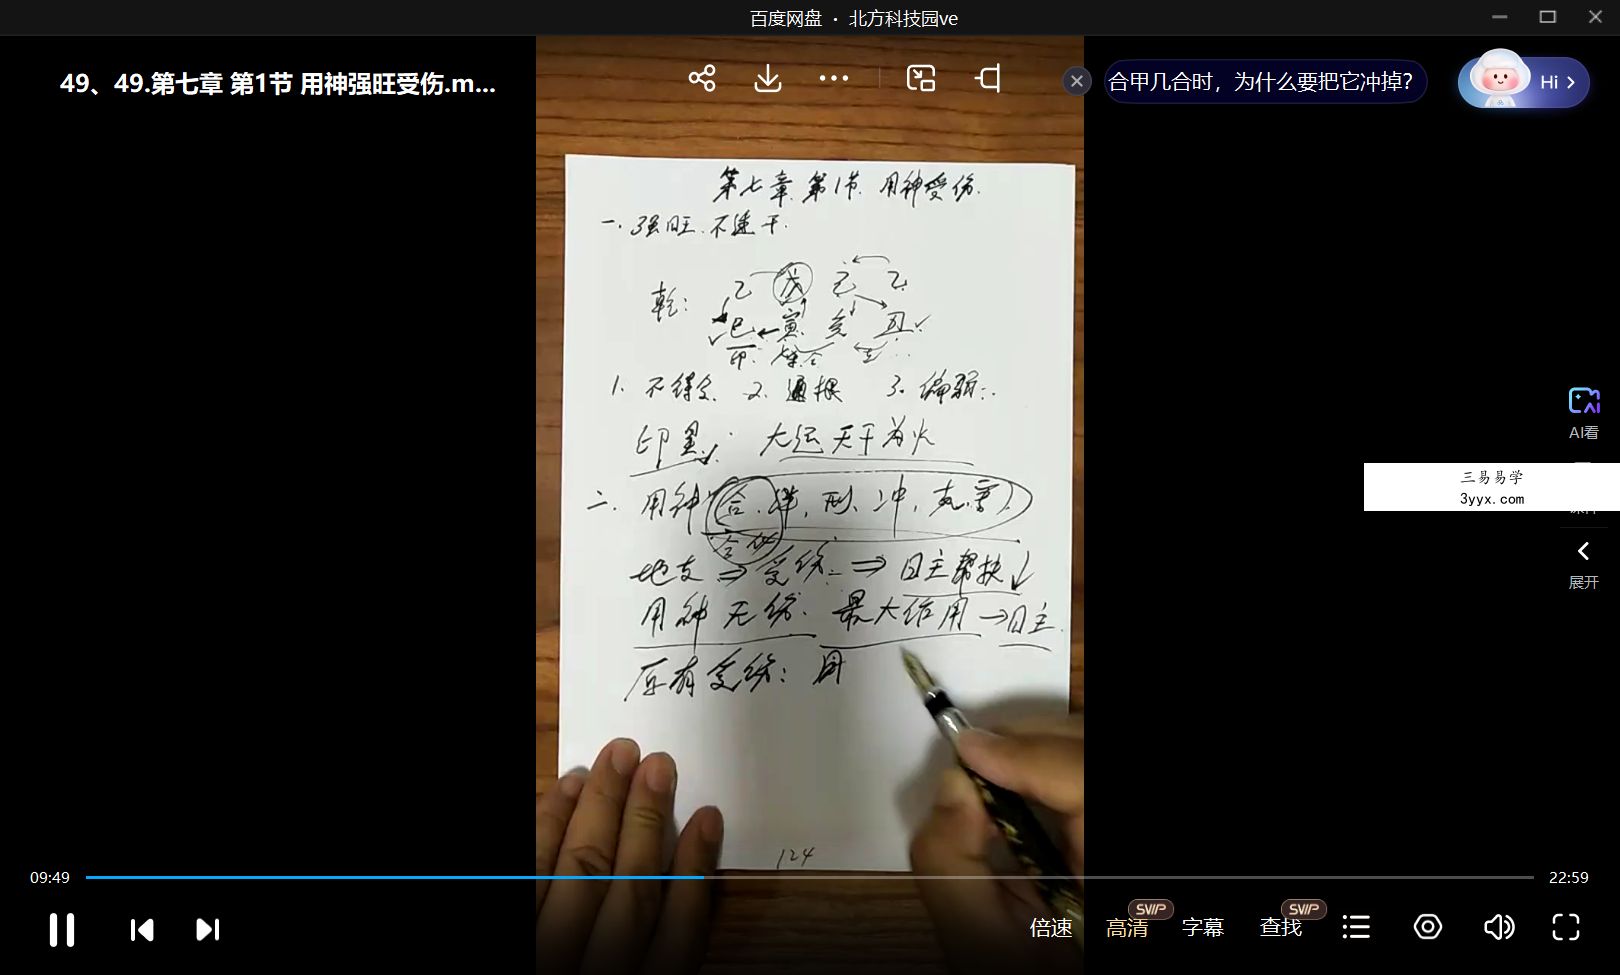 百度网盘 · 北方科技园ve
49、49.第七章 第1节 用神强旺受伤.m...
合甲几合时，为什么要把它冲掉?
Hi
第七章 第1节 用神受伤.
一. 强旺 不透干.
乾: 乙 戊 己 乙.
巳 寅 亥 丑
印.
1. 不得令 2. 通根 3. 偏弱.
印星: 大运天干为火
二. 用神(合. 绊, 刑, 冲, 克, 害)
合化
地支 ⇒ 受伤 ⇒ 日主帮扶↓
用神无伤. 最大作用→日主.
原有受伤: 用
124
AI看
三易易学
3yyx.com
展开
09:49
22:59
倍速
高清
SVIP
字幕
查找
SVIP